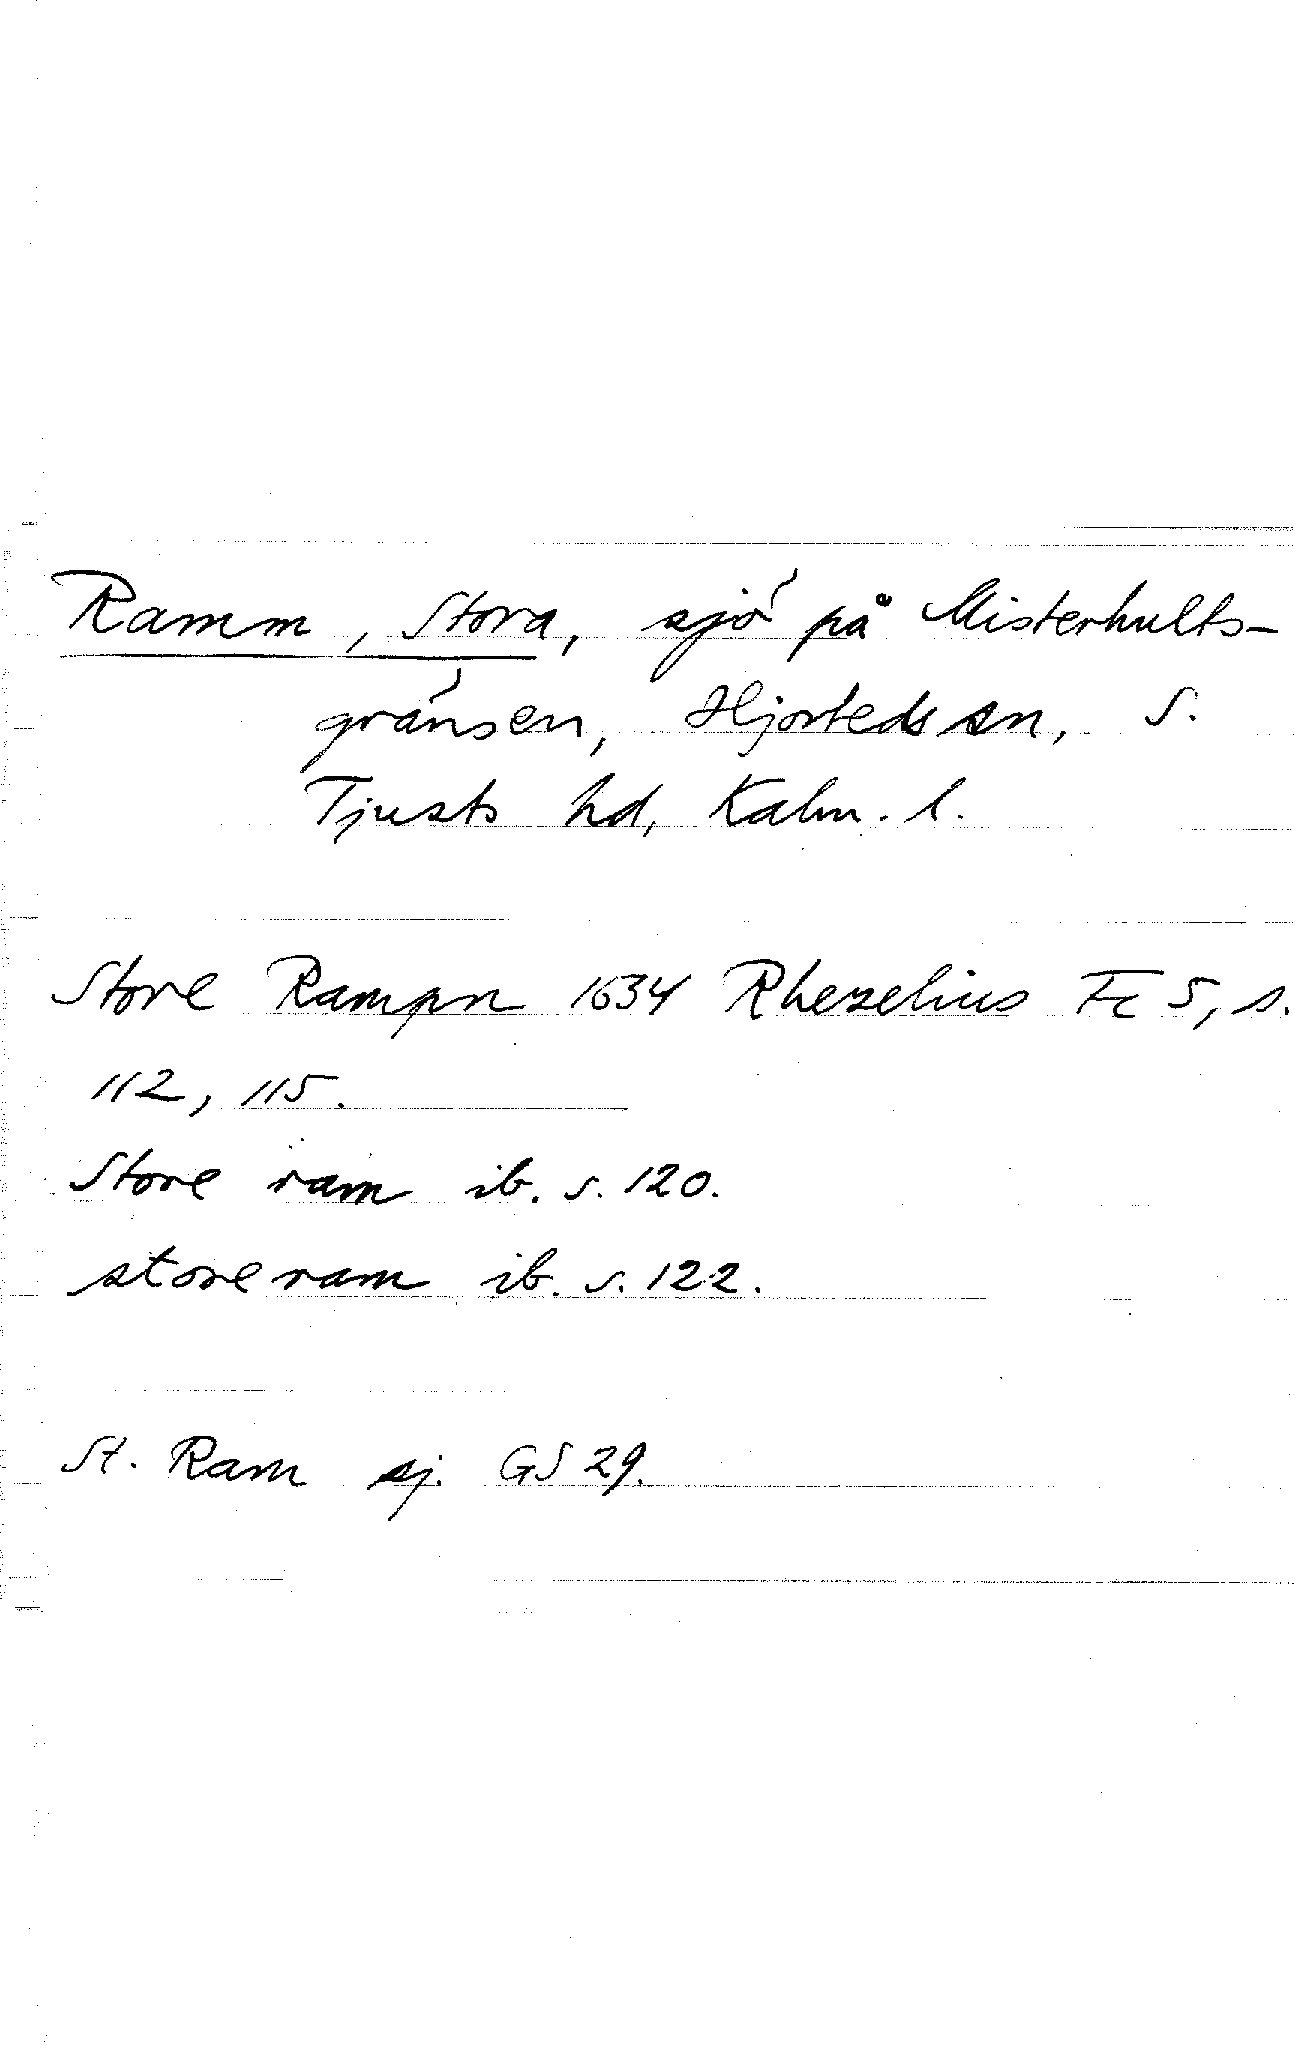 Ramm, Stora, sjö på Misterhults-
gränsen, Hjorteds sn, S.
Tjusts hd, Kalm. l.
Store Rampn 1634 Rhezelius Fc 5, s.
112, 115.
Store ram ib. s. 120.
store ram ib. s. 122.
St. Ram sj. GS 29.